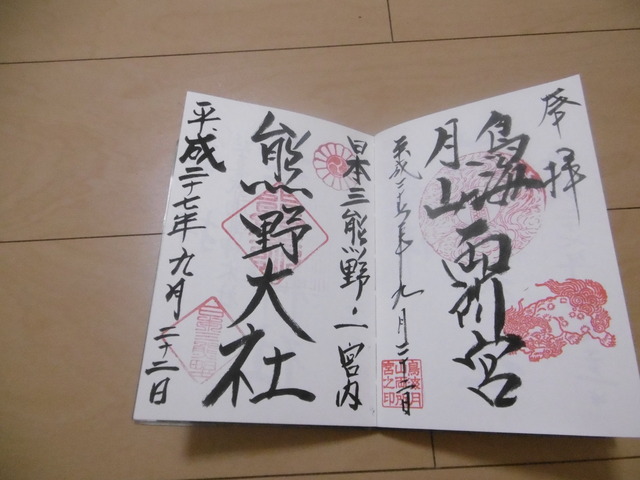 奉拝
鳥海
月山
両所宮
平成二十七年九月二十二日
鳥海月
山両所
宮之印
日本三熊野・一 宮内
熊野大社
平成二十七年九月二十二日